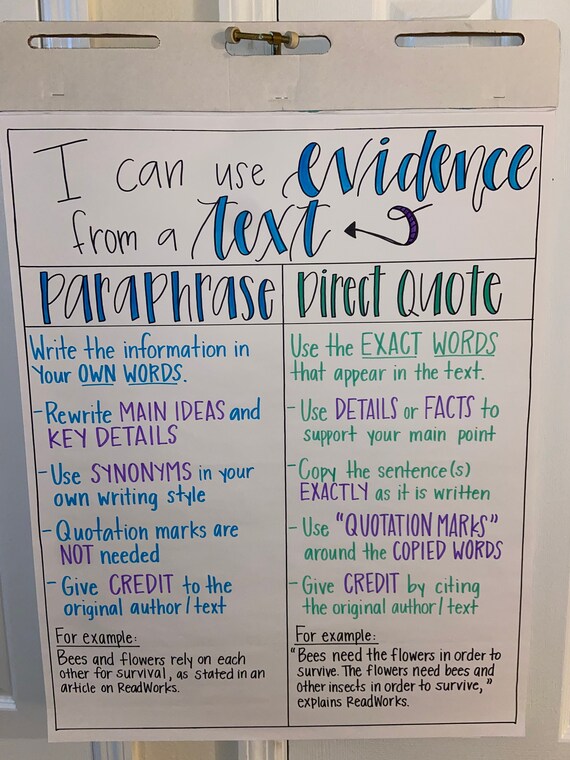 I can use evidence
from a text
Paraphrase
Write the information in
Your OWN WORDS.
-Rewrite MAIN IDEAS and
KEY DETAILS
-Use SYNONYMS in your
own writing style
-Quotation marks are
NOT needed
-Give CREDIT to the
original author/text
For example:
Bees and flowers rely on each
other for survival, as stated in an
article on ReadWorks.
Direct Quote
Use the EXACT WORDS
that appear in the text.
-Use DETAILS or FACTS to
support your main point
-Copy the sentence(s)
EXACTLY as it is written
-Use "QUOTATION MARKS"
around the COPIED WORDS
-Give CREDIT by citing
the original author/text
For example:
"Bees need the flowers in order to
survive. The flowers need bees and
other insects in order to survive,"
explains ReadWorks.